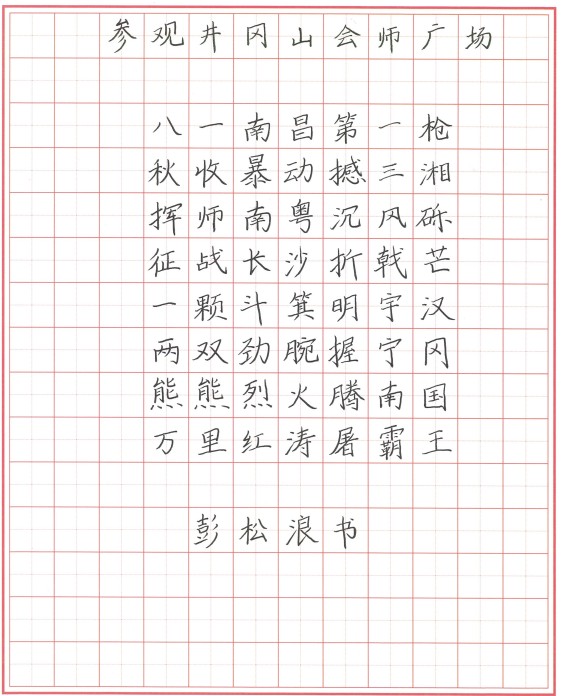 参观井冈山会师广场
八一南昌第一枪
秋收暴动撼三湘
挥师南粤沉风砾
征战长沙折戟芒
一颗斗箕明宇汉
两双劲腕握宁冈
熊熊烈火腾南国
万里红涛屠霸王
彭松浪书